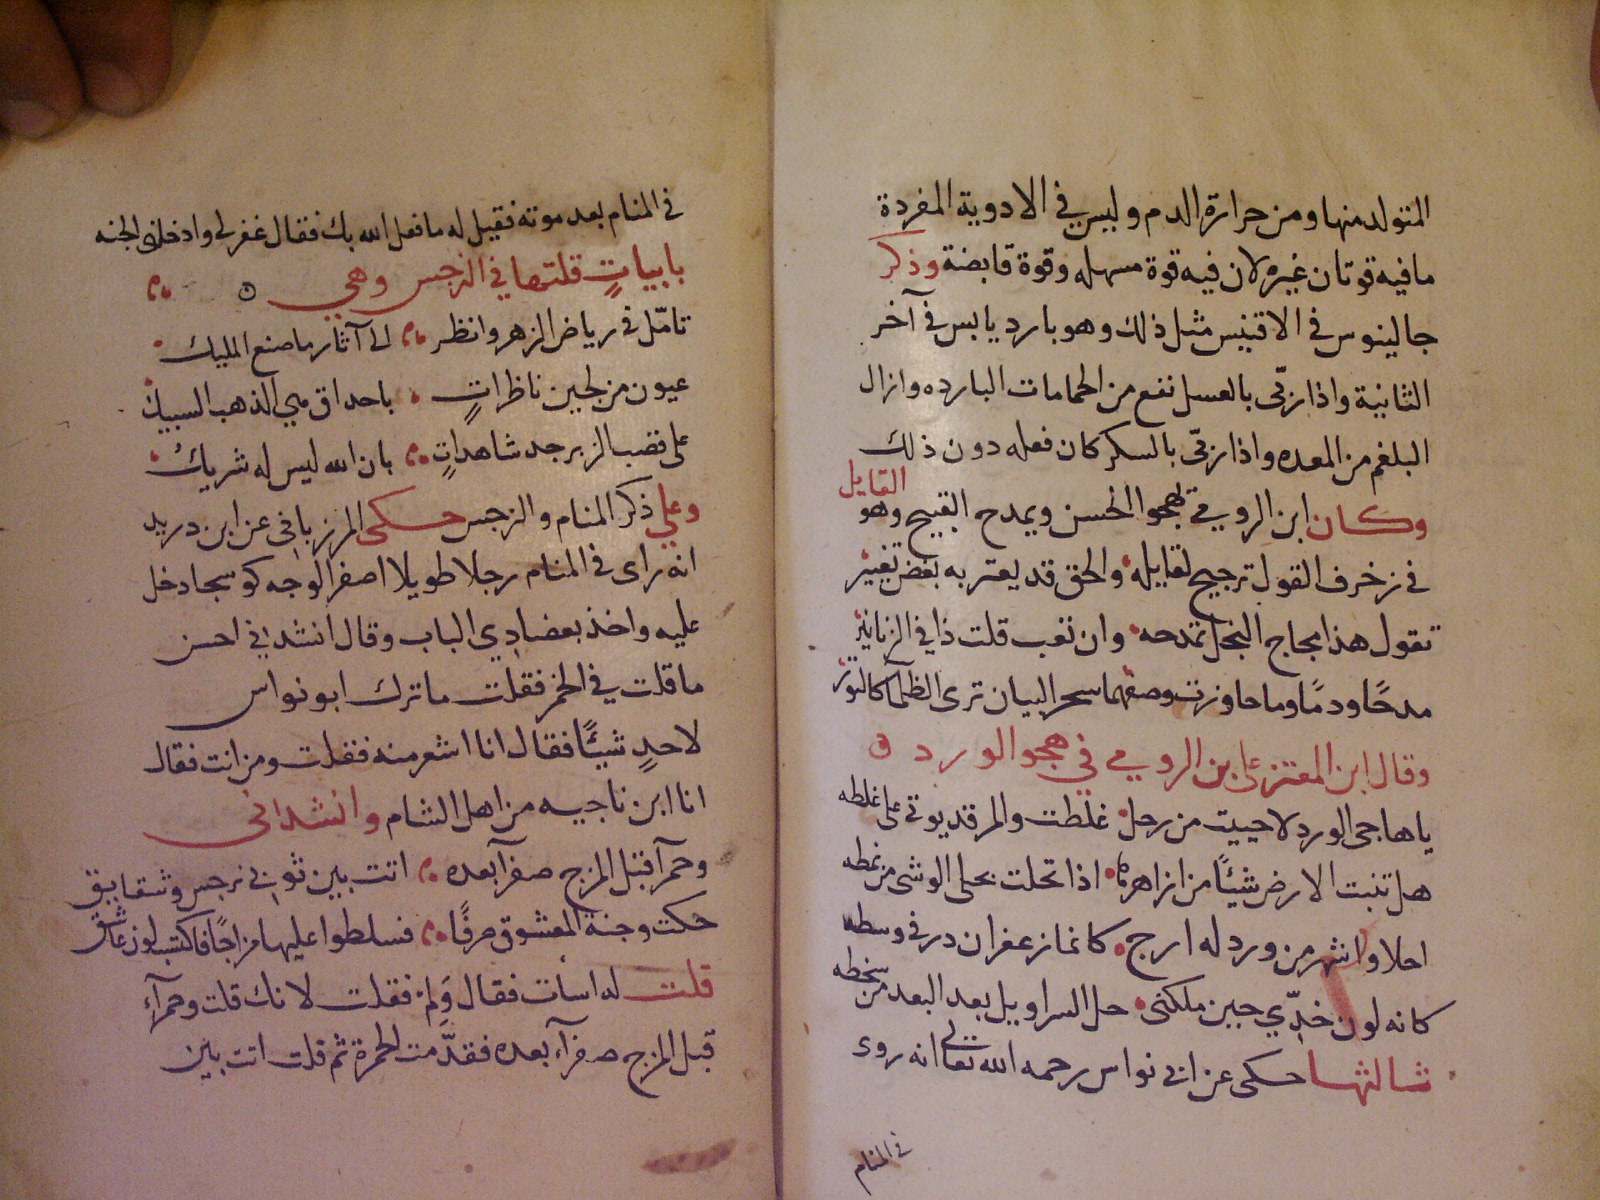 المتولد منها ومن حرارة الدم وليس في الادوية المفردة
ما فيه قوتان غيره لان فيه قوة مسهله وقوة قابضة وذكر
جالينوس في الاقنيس مثل ذلك وهو بارد يابس في آخر
الثانية واذا رُبّى بالعسل نفع من الحمامات البارده وازال
البلغم من المعده واذا ربّى بالسكر كان فعله دون ذلك
وكان ابن الرومي يهجوا الحسن ويمدح القبيح وهو القايل
في زخرف القول ترجيح لقايله والحق قد يعتر به بعض تغيير
تقول هذا مجاج النحل تمدحه وان تعب قلت ذا في الزنابير
مدحًا وذمًا وما جاوزت وصفهما سحر البيان ترى الظلمآ كالنور
وقال ابن المعتز على بن الرومي في هجو الورد
يا هاجى الورد لا حييت من رجل غلطت والمرء قد يوتى على غلطه
هل تنبت الارض شيئًا من ازاهرها اذا تحلت بحلى الوشى من نمطه
احلا واشهر من ورد له ارج كانما زعفران در في وسطه
كانه لون خدّي حين ملكنى حل السراويل بعد البعد من سخطه
ثالثها حكى عن ابي نواس رحمه الله تعالى انه روى
في المنام
في المنام بعد موته فقيل له ما فعل الله بك فقال غفر لي وادخلني الجنه
بابياتٍ قلتها في النرجس وهي
تامّل في رياض الزهر وانظر الى آثار ما صنع المليك
عيون من لجين ناظراتٍ باحداق هي الذهب السبيك
على قضب الزبرجد شاهداتٍ بان الله ليس له شريك
وعلي ذكر المنام والنرجس حكى المرزباني عن ابن دريد
انه راى في المنام رجلا طويلا اصفر الوجه كوسجا دخل
عليه واخذ بعضادي الباب وقال انشدني احسن
ما قلت في الخمر فقلت ما ترك ابو نواس
لاحدٍ شيئًا فقال انا اشعر منه فقلت ومن انت فقال
انا ابن ناجيه من اهل الشام وانشداني
وحمرآ قبل المزج صفرآ بعده اتت بين ثوبي نرجس وشقايق
حكت وجنة المعشوق صرفًا فسلطوا عليها مزاجًا فاكتست لون عاشق
قلت له اسأت فقال وَلِمْ فقلت لانك قلت وحمرآء
قبل المزج صفرآء بعده فقدَّمت الحمرة ثم قلت اتت بين